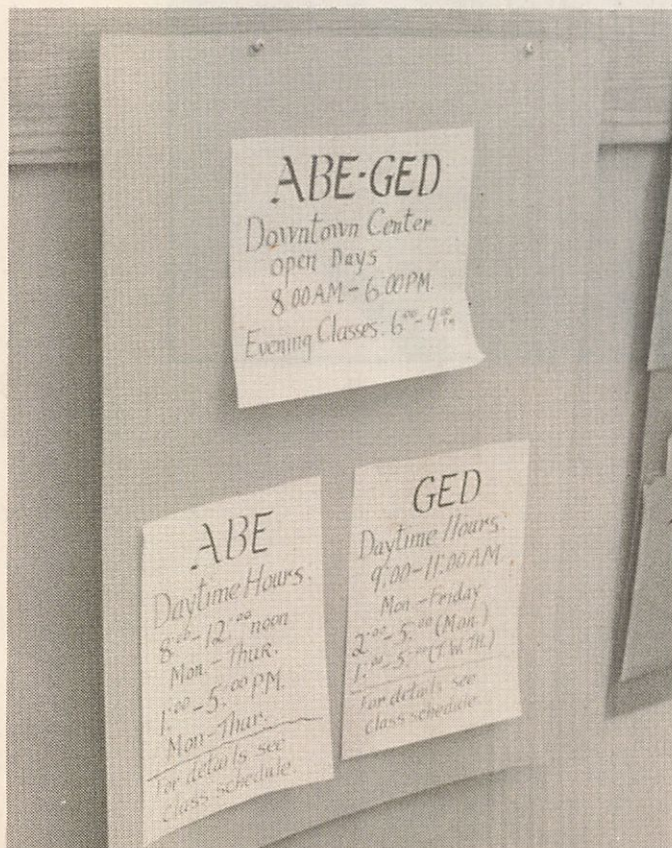 ABE-GED
Downtown Center
open Days
8:00AM-6:00PM.
Evening Classes: 6:00-9:00
ABE
Daytime Hours:
8:00-12:00 noon
Mon.-Thur.
1:00-5:00 PM.
Mon-Thur.
For details see
class schedule.
GED
Daytime Hours:
9:00-11:00AM.
Mon.-Friday
2:00-5:00 (Mon.)
1:00-5:00 (T.W.TH.)
For details see
class schedule.